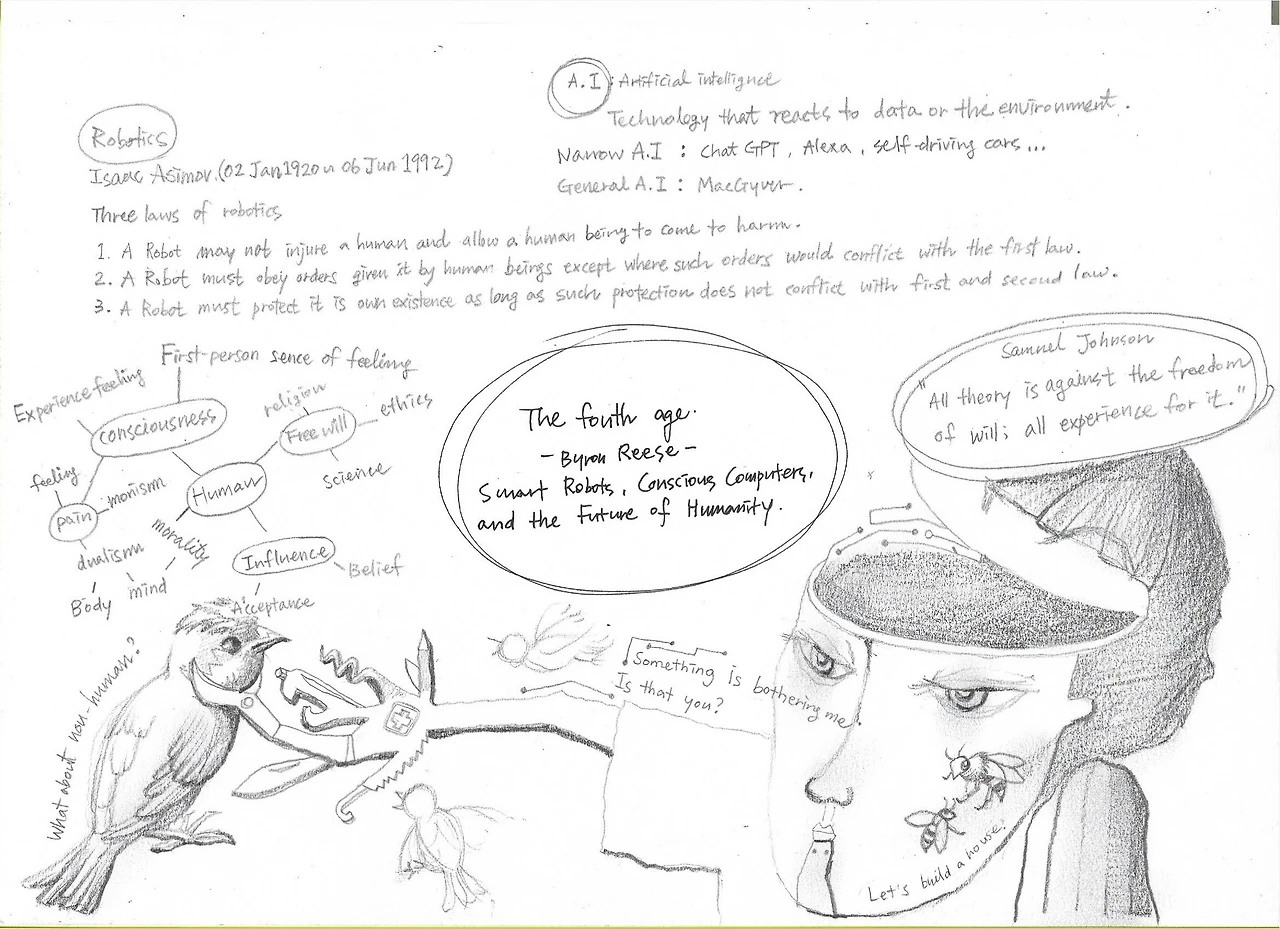 A.I : Artificial intellignce
Technology that reacts to data or the environment.
Narrow A.I : Chat GPT, Alexa, self-driving cars...
General A.I : MacGyver.
Robotics
Isaac Asimov.(02 Jan1920 ~ 06 Jun 1992)
Three laws of robotics
1. A Robot may not injure a human and allow a human being to come to harm.
2. A Robot must obey orders given it by human beings except where such orders would conflict with the first law.
3. A Robot must protect it is own existence as long as such protection does not conflict with first and second law.
First-person sence of feeling
Experience feeling
consciousness
religion
Free will
ethics
science
feeling
monism
Human
pain
morality
dualism
mind
Body
Influence
Belief
Acceptance
The fouth age.
- Byron Reese -
Smart Robots, Conscious Computers,
and the Future of Humanity.
Samuel Johnson
"All theory is against the freedom
of will; all experience for it."
What about non-human?
Something is bothering me.
Is that you?
Let's build a house!